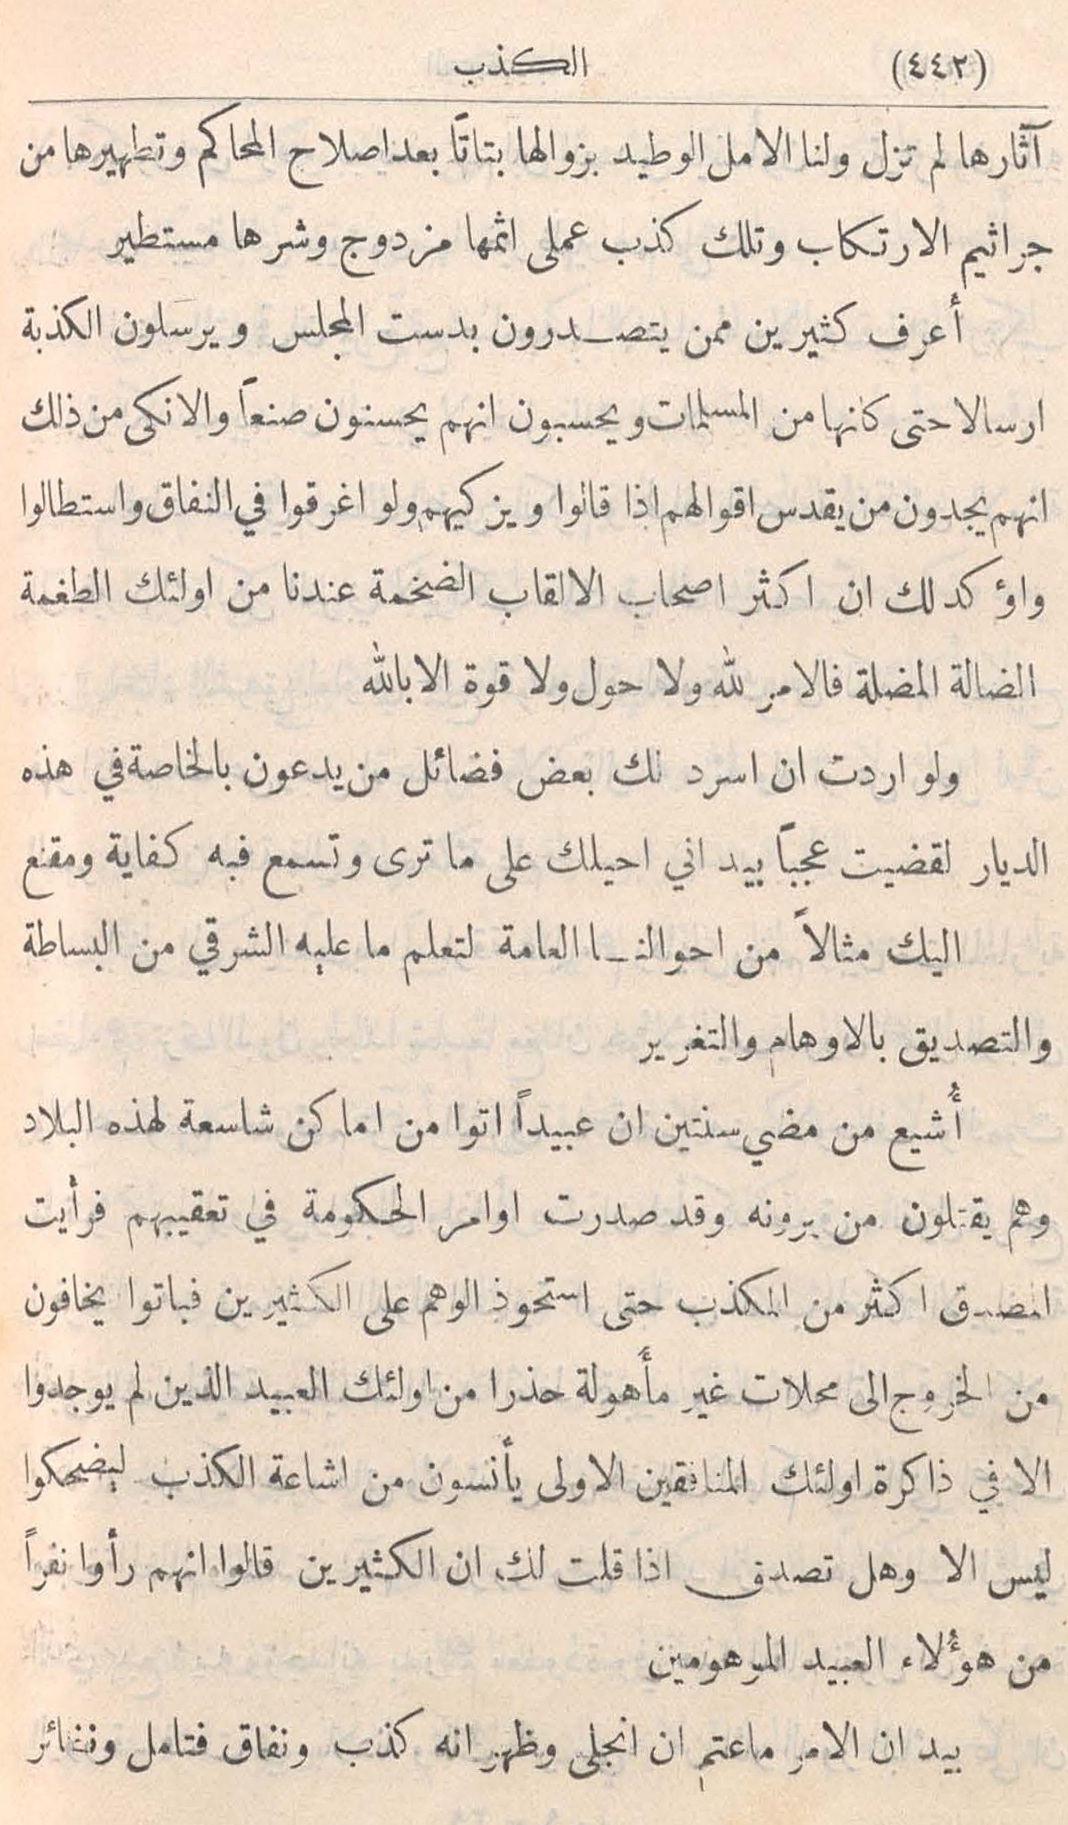 (٤٤٢) الكذب
آثارها لم تزل ولنا الامل الوطيد بزوالها بتاتاً بعد اصلاح المحاكم وتطهيرها من
جراثيم الارتكاب وتلك كذب عملى اثمها مزدوج وشرها مستطير
أعرف كثيرين ممن يتصدرون بدست المجلس ويرسلون الكذبة
ارسالا حتى كانها من المسلمات ويحسبون انهم يحسنون صنعاً والانكى من ذلك
انهم يجدون من يقدس اقوالهم اذا قالوا ويزكيهم ولو اغرقوا في النفاق واستطالوا
واؤكد لك ان اكثر اصحاب الالقاب الضخمة عندنا من اولئك الطغمة
الضالة المضلة فالامر لله ولا حول ولا قوة الا بالله
ولو اردت ان اسرد لك بعض فضائل من يدعون بالخاصة في هذه
الديار لقضيت عجباً بيد اني احيلك على ما ترى وتسمع فبه كفاية ومقنع
اليك مثالاً من احوالنا العامة لتعلم ما عليه الشرقي من البساطة
والتصديق بالاوهام والتغرير
أُشيع من مضي سنتين ان عبيداً اتوا من اماكن شاسعة لهذه البلاد
وهم يقتلون من يرونه وقد صدرت اوامر الحكومة في تعقيبهم فرأيت
المصدق اكثر من المكذب حتى استحوذ الوهم على الكثيرين فباتوا يخافون
من الخروج الى محلات غير مأهولة حذرا من اولئك العبيد الذين لم يوجدوا
الا في ذاكرة اولئك المنافقين الاولى يأنسون من اشاعة الكذب ليضحكوا
ليس الا وهل تصدق اذا قلت لك ان الكثيرين قالوا انهم رأوا نفراً
من هؤلاء العبيد الموهومين
بيد ان الامر ماعتم ان انجلى وظهر انه كذب ونفاق فتامل ونظائر